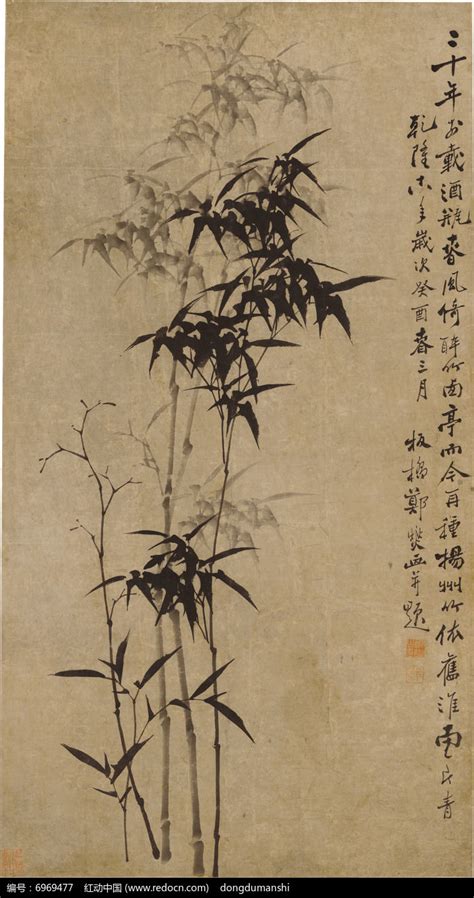 二十年前載酒瓶春風倚醉竹西亭而今再種揚州竹依舊淮南一片青
乾隆十八年歲次癸酉春三月 板橋鄭燮畫并題
编号：6969477 红动中国 (www.redocn.com) dongdumanshi